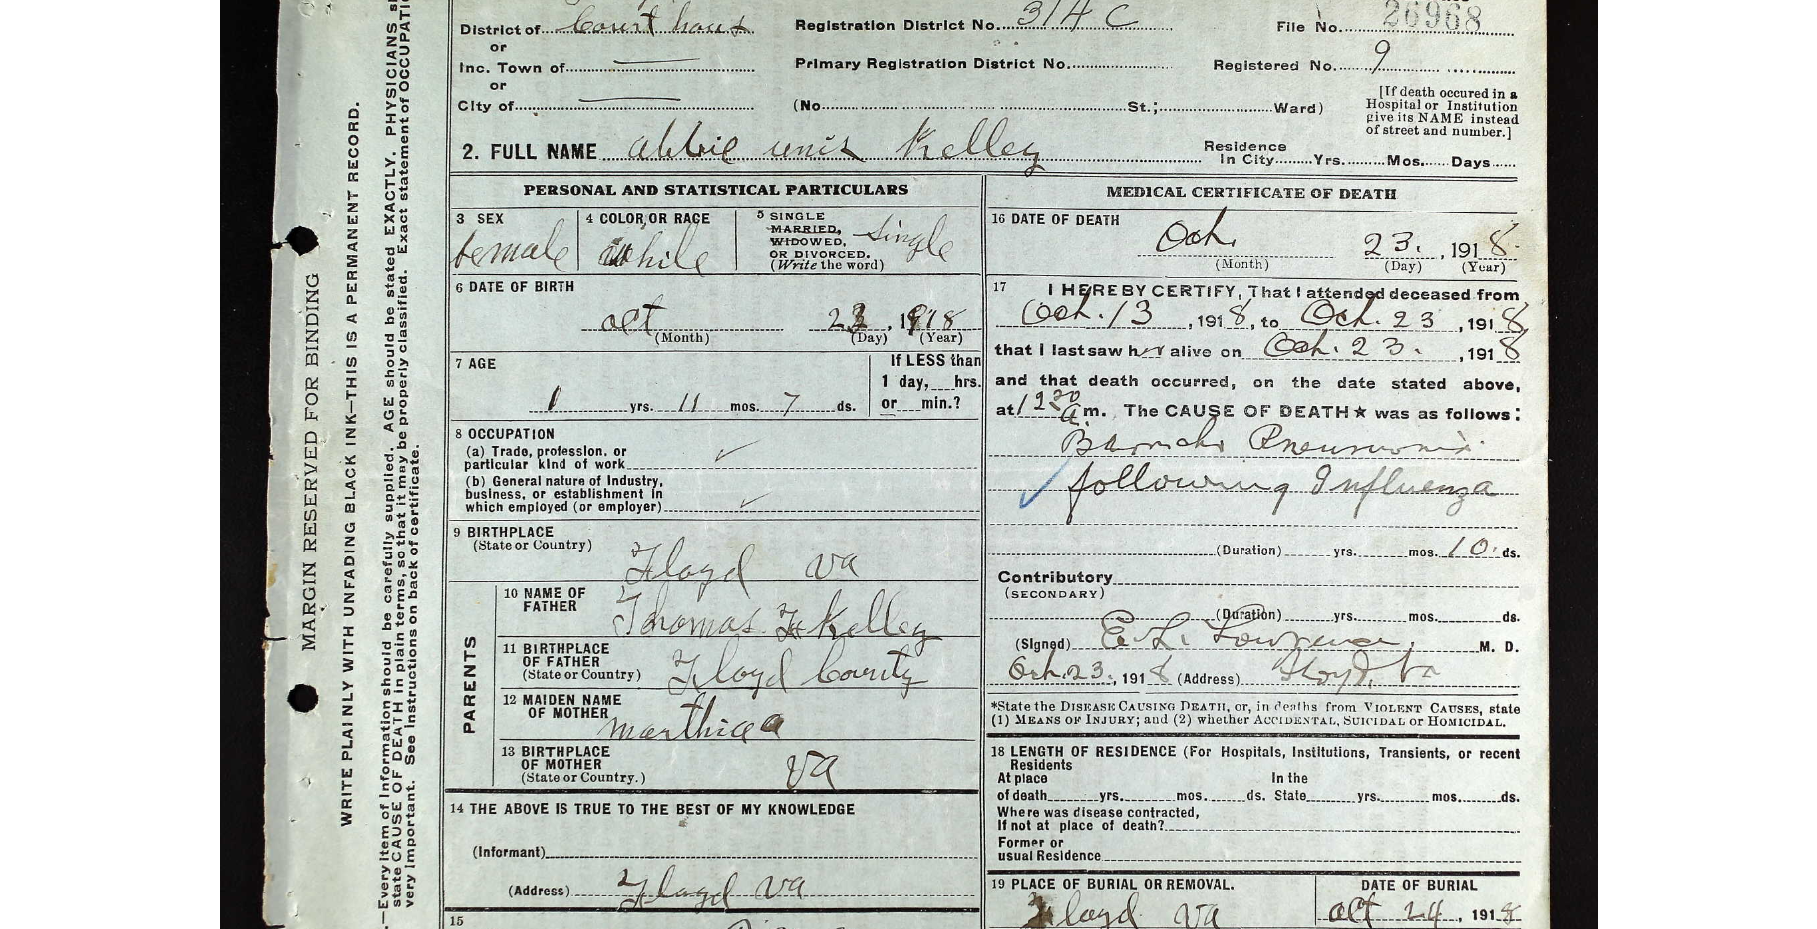 District of Courthouse Registration District No. 314 C File No. 26968
or
Inc. Town of Primary Registration District No. Registered No. 9
or
City of (No. St.; Ward) [If death occured in a Hospital or Institution give its NAME instead of street and number.]
2. FULL NAME Abbie Kelley Residence In City Yrs. Mos. Days
PERSONAL AND STATISTICAL PARTICULARS
3 SEX female
4 COLOR OR RACE white
5 SINGLE MARRIED, WIDOWED, OR DIVORCED. (Write the word) single
6 DATE OF BIRTH
oct 23, 1918
(Month) (Day) (Year)
7 AGE
1 yrs. 11 mos. 7 ds.
If LESS than 1 day, hrs. or min.?
8 OCCUPATION
(a) Trade, profession, or
particular kind of work
(b) General nature of Industry,
business, or establishment in
which employed (or employer)
9 BIRTHPLACE
(State or Country)
Floyd va
PARENTS
10 NAME OF FATHER Thomas Kelley
11 BIRTHPLACE OF FATHER (State or Country) Floyd County
12 MAIDEN NAME OF MOTHER
13 BIRTHPLACE OF MOTHER (State or Country.) va
14 THE ABOVE IS TRUE TO THE BEST OF MY KNOWLEDGE
(Informant)
(Address) Floyd va
15
MEDICAL CERTIFICATE OF DEATH
16 DATE OF DEATH
Oct. 23., 1918.
(Month) (Day) (Year)
17 I HEREBY CERTIFY, That I attended deceased from
Oct. 13, 1918, to Oct. 23, 1918,
that I last saw her alive on Oct. 23., 1918
and that death occurred, on the date stated above,
at 12 20 a.m. The CAUSE OF DEATH★ was as follows:
Broncho Pneumonia
following Influenza
(Duration) yrs. mos. 10. ds.
Contributory
(SECONDARY)
(Duration) yrs. mos. ds.
(Signed) E. L. M. D.
Oct. 23., 1918 (Address) Floyd, Va
*State the DISEASE CAUSING DEATH, or, in deaths from VIOLENT CAUSES, state
(1) MEANS OF INJURY; and (2) whether ACCIDENTAL, SUICIDAL or HOMICIDAL.
18 LENGTH OF RESIDENCE (For Hospitals, Institutions, Transients, or recent
Residents
At place In the
of death yrs. mos. ds. State yrs. mos. ds.
Where was disease contracted,
If not at place of death?
Former or
usual Residence
19 PLACE OF BURIAL OR REMOVAL. DATE OF BURIAL
Floyd va oct 24, 1918
MARGIN RESERVED FOR BINDING
WRITE PLAINLY WITH UNFADING BLACK INK—THIS IS A PERMANENT RECORD.
—Every item of information should be carefully supplied. AGE should be stated EXACTLY. PHYSICIANS
state CAUSE OF DEATH in plain terms, so that it may be properly classified. Exact statement of
very important. See Instructions on back of certificate.